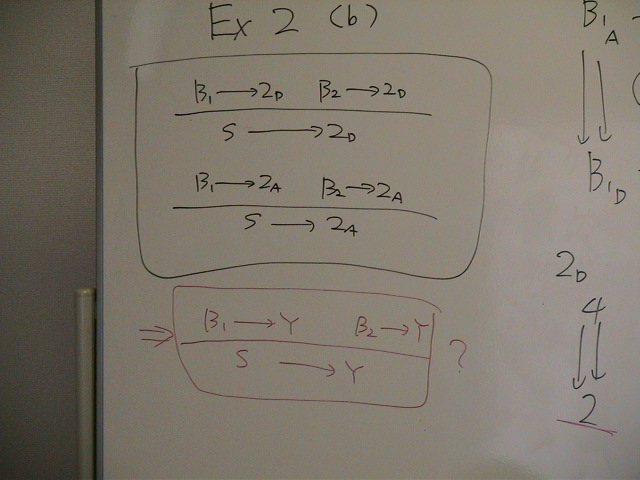 Ex 2 (b)
B₁ → 2_D   B₂ → 2_D
S → 2_D
B₁ → 2_A   B₂ → 2_A
S → 2_A
⇒ B₁ → Y   B₂ → Y
S → Y ?
B₁_A
B₁_D
2_D
4
2